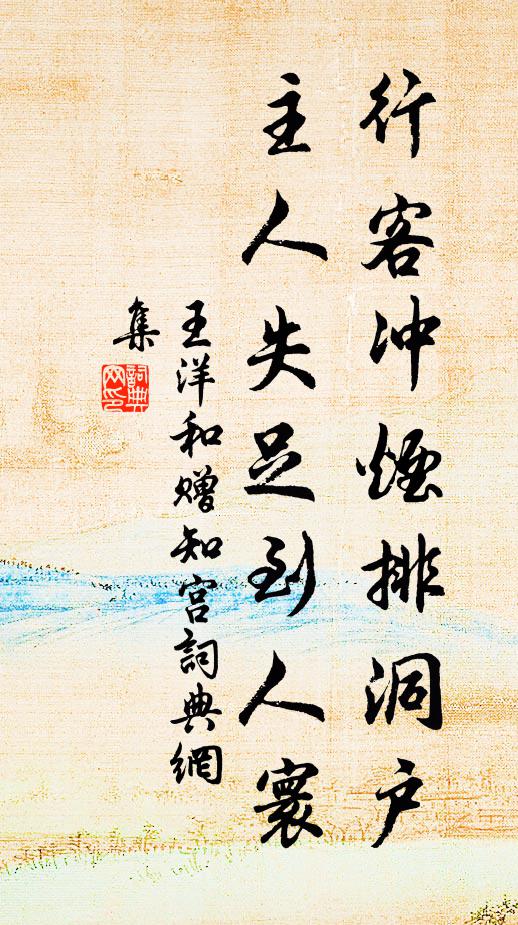 行客冲煙排洞户
主人失足到人寰
王洋和赠知宫詞典網
集
詞典
网印